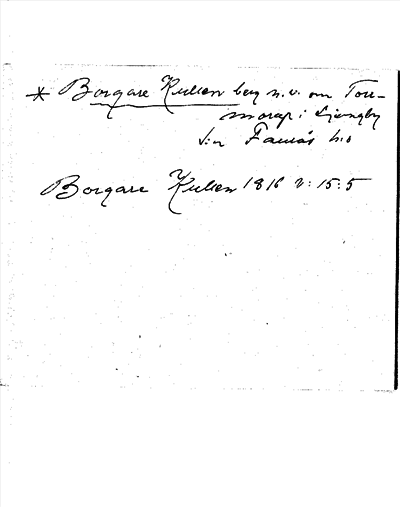 * Borgare Kullen berg n.v. om Torr-
morap i Ljungby
s:n Faurås h:d
Borgare Kullen 1816 2:15:5